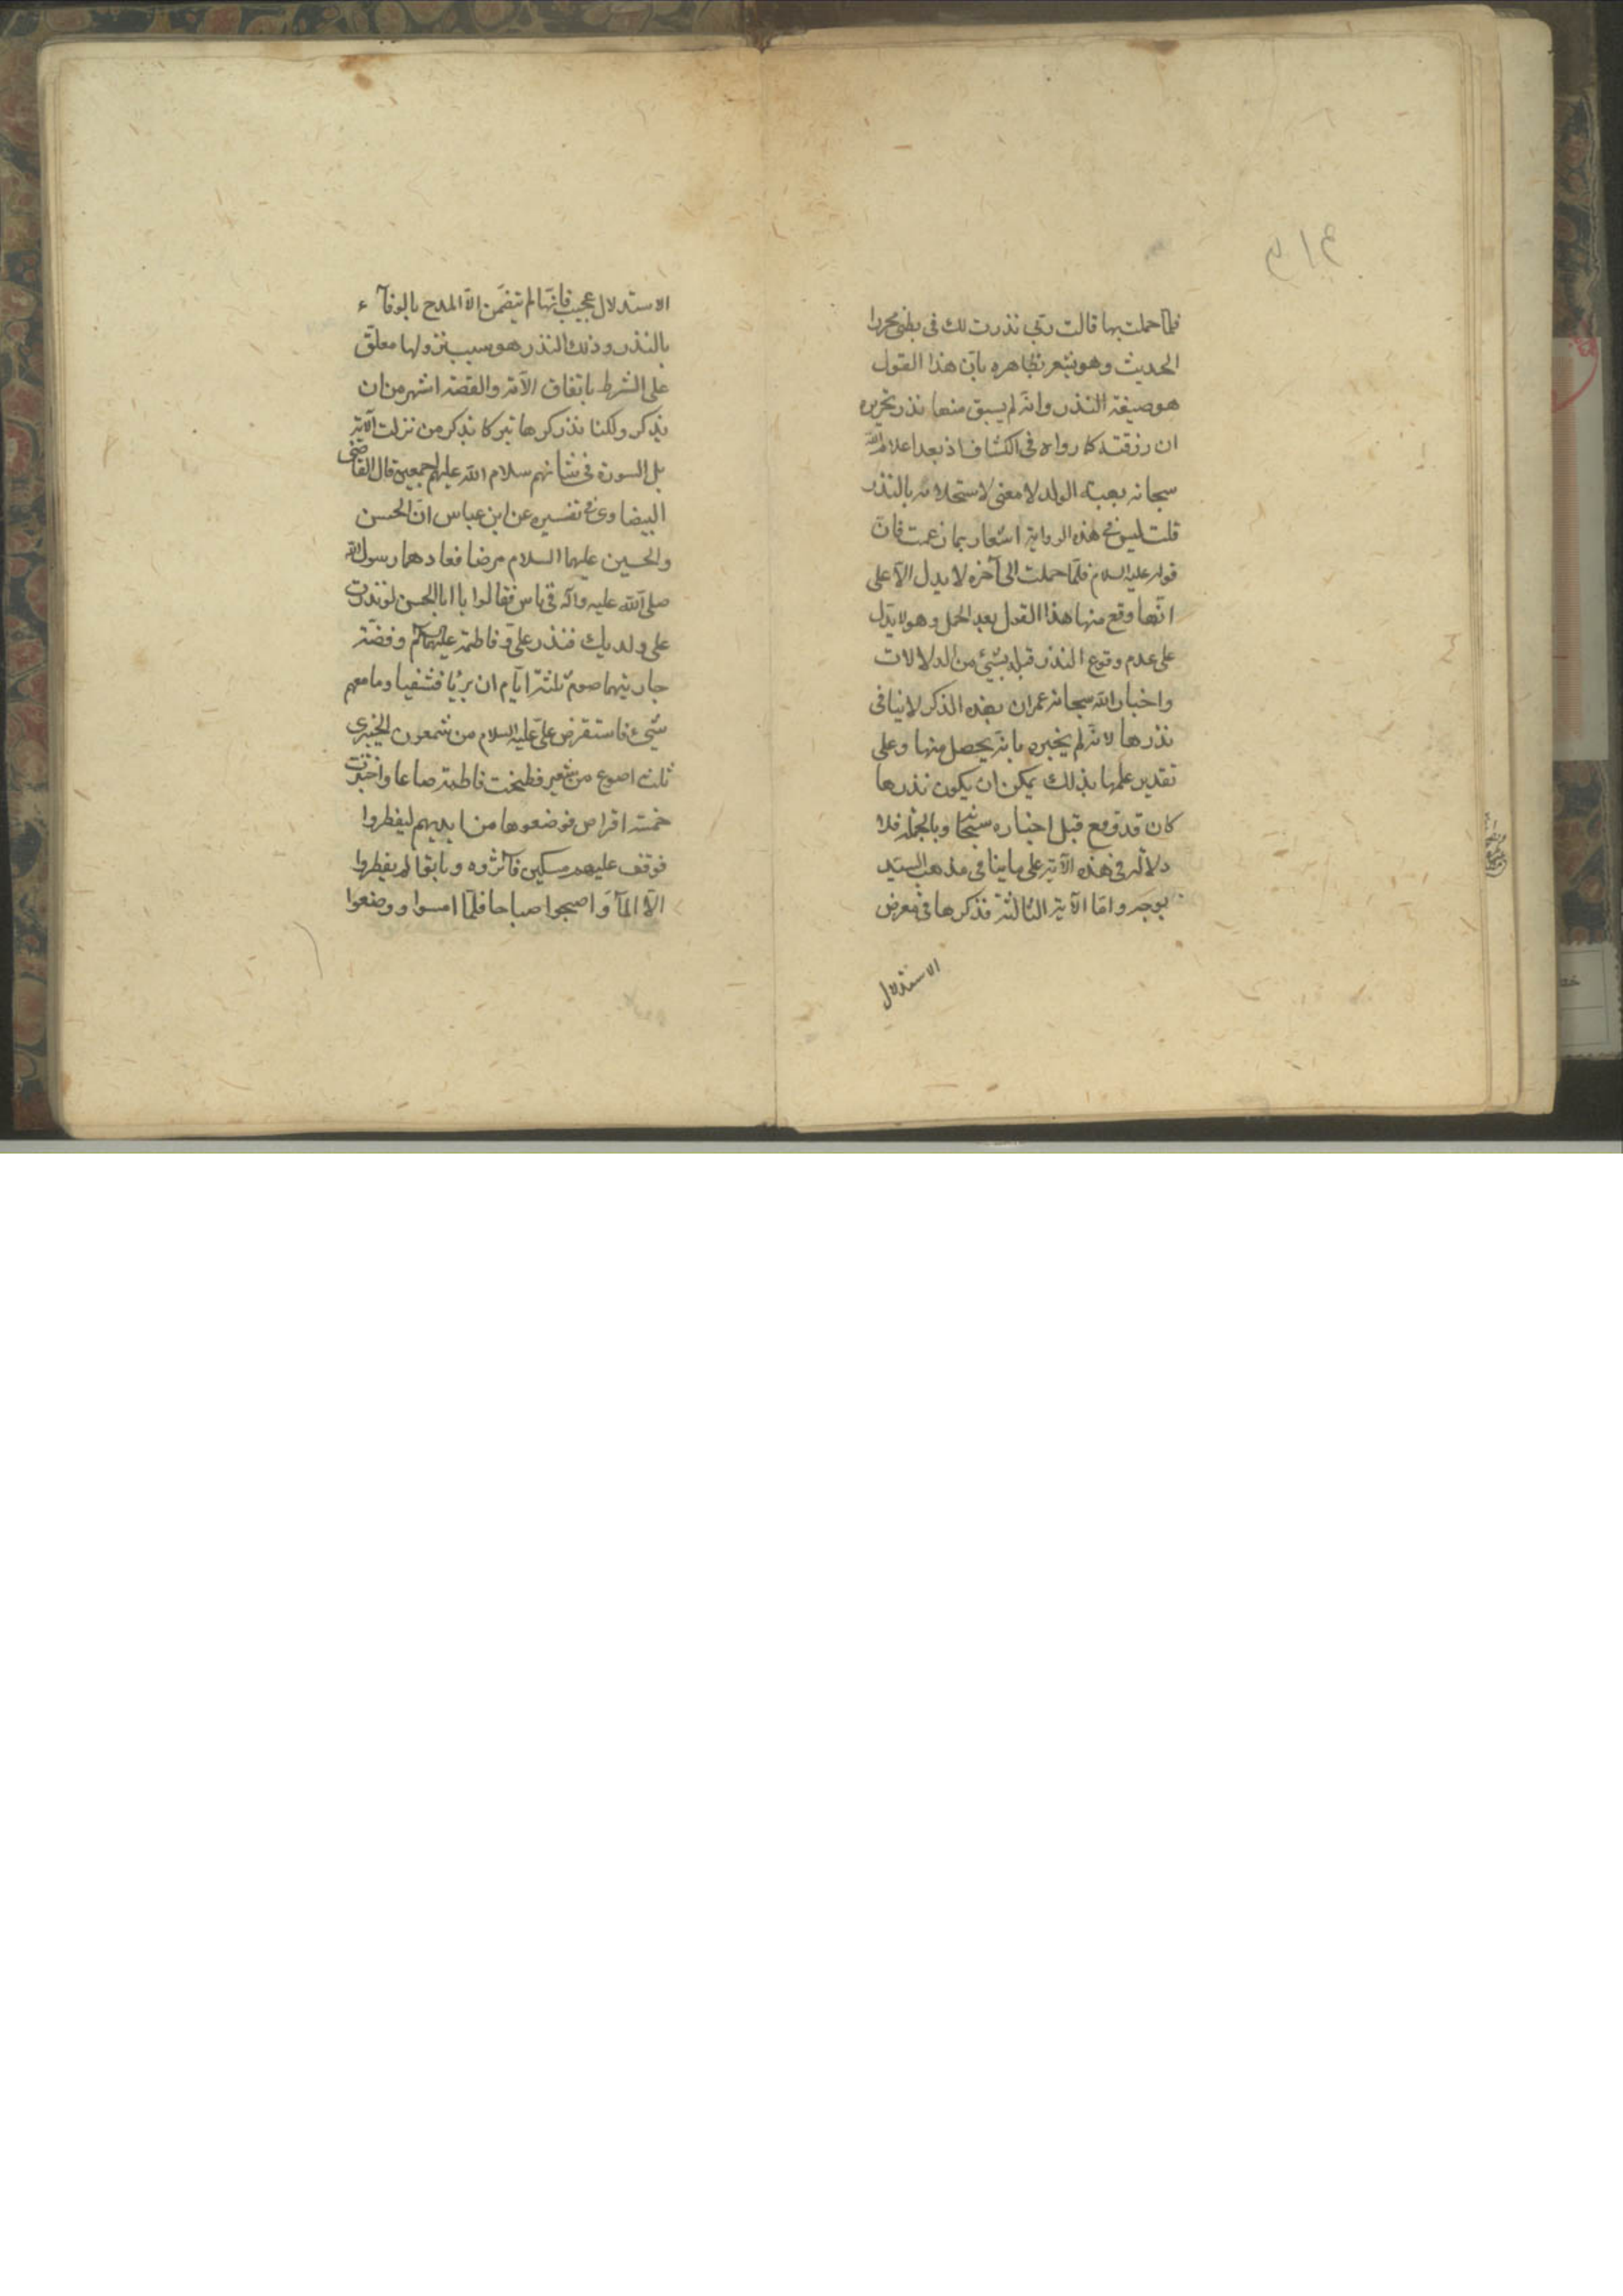 فلما حملت بها قالت ربّ نذرت لك فى بطنى محررا
الحديث وهو يشعر بظاهره بانّ هذا القول
هو صيغة النذر وانه لم يسبق منها نذر تحريره
ان رزقته كما رواه فى الكشاف اذ بعد اعلام الله
سبحانه بهبة الولد لا معنى لاستجلابه بالنذر
قلت ليس فى هذه الرواية اشعار بما زعمت فانّ
قوله عليه السلام فلمّا حملت الى آخره لا يدل الّا على
انّها وقع منها هذا القول بعد الحمل وهو لا يدلّ
على عدم وقوع النذر قبله بشيئ من الدلالات
واخبار الله سبحانه عمران بهذه الذكر لا ينافى
نذرها لانه لم يخبره بانه يحصل منها وعلى
تقدير علمها بذلك يمكن ان يكون نذرها
كان قد وقع قبل اخباره سبحانه وبالجملة فلا
دلالة فى هذه الآية على ما ينافى مذهب السيّد
بوجه وامّا الآية الثالثة فذكرها فى معرض
الاستدلال
الاستدلال عجيب فانّها لم تتضمّن الّا المدح بالوفآء
بالنذر وذلك النذر هو سبب نزولها معلّق
على الشرط باتفاق الأمة والقصة اشهر من ان
يذكر ولكنا نذكرها تبركا بذكر من نزلت الآية
بل السورة فى شانهم سلام الله عليهم اجمعين قال القاضى
البيضاوى فى تفسيره عن ابن عباس انّ الحسن
والحسين عليهما السلام مرضا فعادهما رسول الله
صلى الله عليه وآله فى ناس فقالوا يا ابا الحسن لو نذرت
على ولديك فنذر علىّ وفاطمة عليهما السلام وفضّة
جاريتهما صوم ثلثة ايّام ان برئا فشفيا وما معهم
شيئ فاستقرض علىّ عليه السلام من شمعون الخيبرى
ثلث اصوع من شعير فطحنت فاطمة صاعا واختبزت
خمسة اقراص فوضعوها من ايديهم ليفطروا
فوقف عليهم مسكين فآثروه وباتوا لم يفطروا
الّا المآء واصبحوا صياما فلمّا امسوا ووضعوا